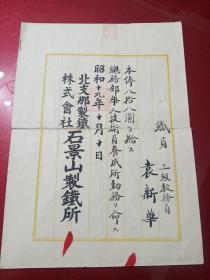 職員 三級教務員
袁新華
本俸八拾八圓ヲ給ス
總務部華人技術員養成所勤務ヲ命ス
昭和十九年十月十日
北支那製鐵株式會社石景山製鐵所